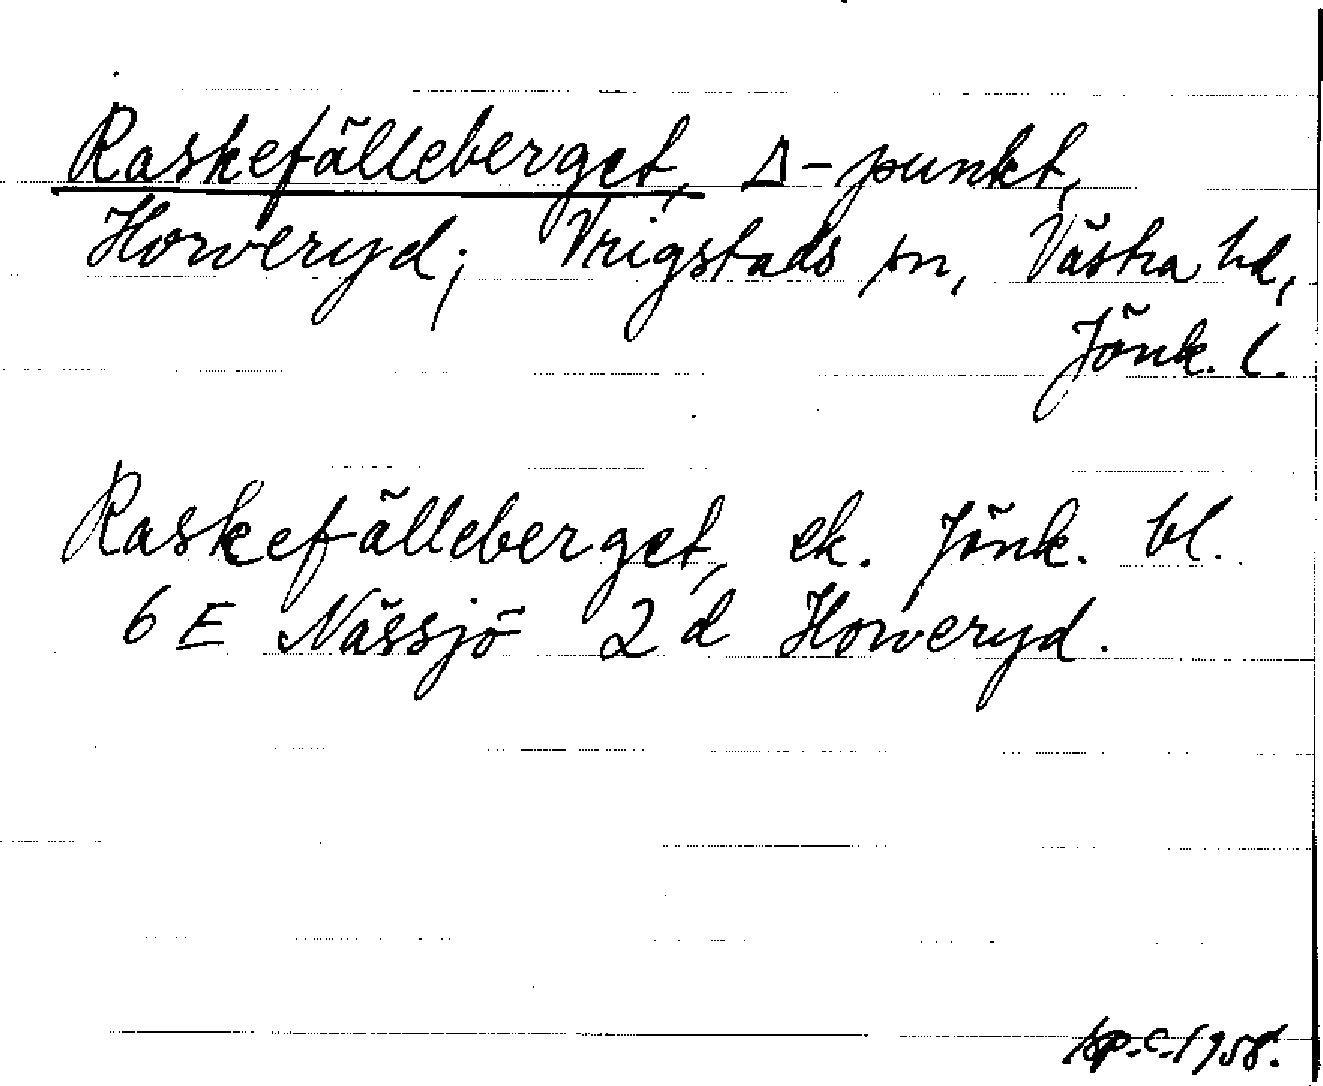 Raskefälleberget, Δ-punkt,
Horveryd; Vrigstads sn, Västra hd,
Jönk. l.
Raskefälleberget, ek. Jönk. bl.
6 E Nässjö 2 d Horveryd.
1958.